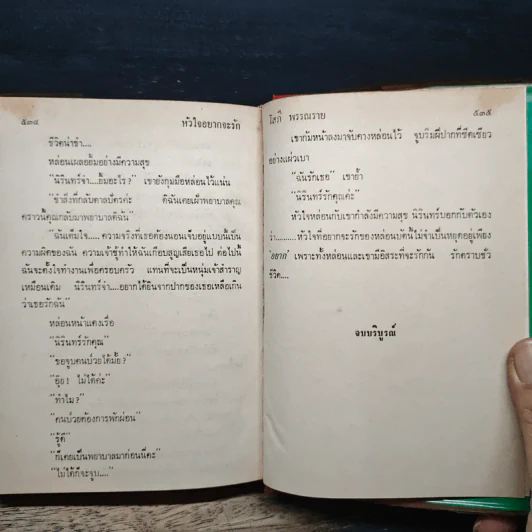 ๕๓๔ หัวใจอยากจะรัก
ชีวิตน่าขำ....
หล่อนเผลอยิ้มอย่างมีความสุข
"นิรินทร์จ๋า....ยิ้มอะไร?" เขายังกุมมือหล่อนไว้แน่น
"ขำสิ่งที่กลับตาลปัตรค่ะ ดิฉันเคยเฝ้าพยาบาลคุณ
คราวนี้คุณกลับมาพยาบาลดิฉัน"
"ฉันเต็มใจ..... ความจริงที่เธอต้องนอนเจ็บอยู่แบบนี้เป็น
ความผิดของฉัน ความเจ้าชู้ทำให้ฉันเกือบสูญเสียเธอไป ต่อไปนี้
ฉันจะตั้งใจทำงานเพื่อครอบครัว แทนที่จะเป็นหนุ่มเจ้าสำราญ
เหมือนเดิม นิรินทร์จ๋า....อยากได้ยินจากปากของเธอเหลือเกิน
ว่าเธอรักฉัน"
หล่อนหน้าแดงเรื่อ
"นิรินทร์รักคุณ"
"ขอจูบคนป่วยได้มั้ย?"
"อุ๊ย! ไม่ได้ค่ะ"
"ทำไม?"
"คนป่วยต้องการพักผ่อน"
"รู้ดี"
"ก็เคยเป็นพยาบาลมาก่อนนี่คะ"
"ไม่ได้ก็จะจูบ...."
โสภี พรรณราย ๕๓๕
เขาก้มหน้าลงมาจับคางหล่อนไว้ จูบริมฝีปากที่ซีดเซียว
อย่างแผ่วเบา
"ฉันรักเธอ" เขาย้ำ
"นิรินทร์รักคุณค่ะ"
หัวใจหล่อนกับเขากำลังมีความสุข นิรินทร์บอกกับตัวเอง
ว่า.........หัวใจที่อยากจะรักของหล่อนบัดนี้ไม่จำเป็นหยุดอยู่เพียง
'อยาก' เพราะทั้งหล่อนและเขามีอิสระที่จะรักกัน รักตราบชั่ว
ชีวิต....
จบบริบูรณ์